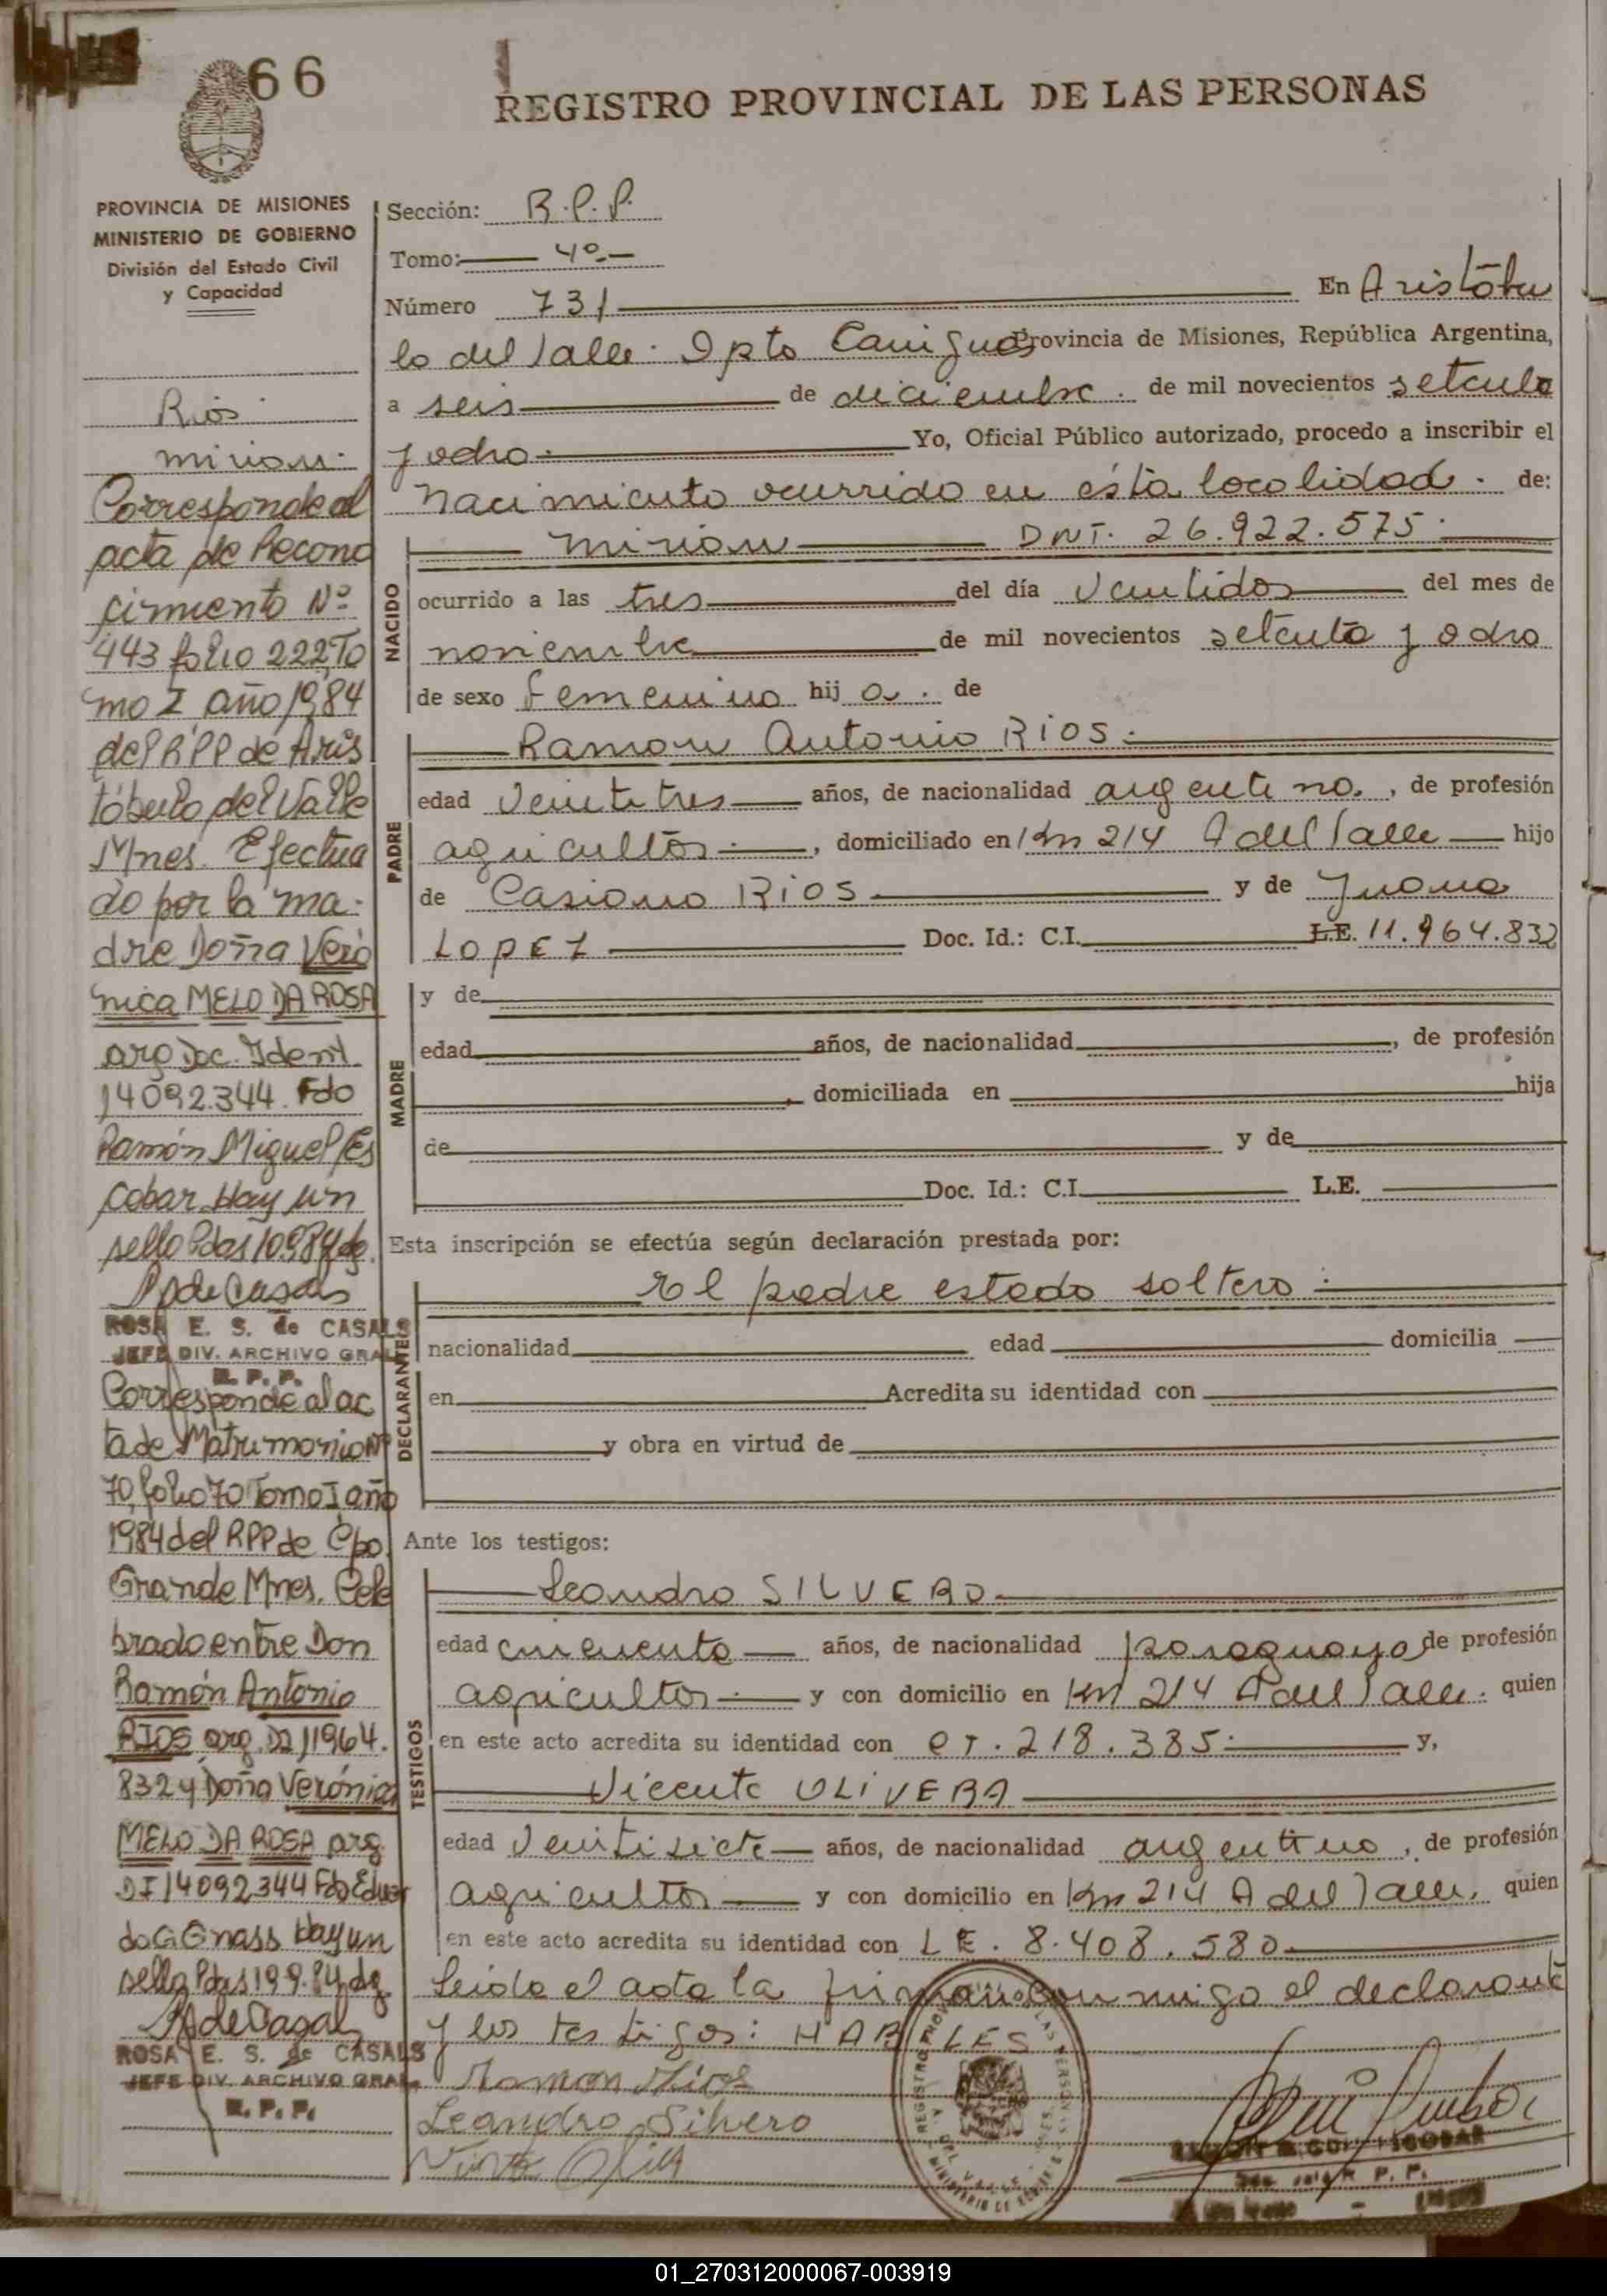 66
REGISTRO PROVINCIAL DE LAS PERSONAS
PROVINCIA DE MISIONES
MINISTERIO DE GOBIERNO
División del Estado Civil
y Capacidad
Rios
Mirian.
Corresponde al
acta de Recono
cimiento Nº
443 folio 222 To
mo I año 1984
del RPP de Aris
tóbulo del Valle
Mnes. Efectua
do por la ma-
dre Doña Veró
nica MELO DA ROSA
arg Doc. Ident.
14092.344. Fdo
Ramón Miguel Es
cobar. Hay un
sello Pdas 10.9.84 dg.
ROSA E. S. de CASALS
JEFE DIV. ARCHIVO GRAL
R. P. P.
Corresponde al ac
ta de Matrimonio Nº
70, folio 70 Tomo I año
1984 del RPP de Cpo
Grande Mnes. Cele
brado entre Don
Ramón Antonio
RIOS arg. DI 11964.
832 y Doña Verónica
MELO DA ROSA arg.
DI 14092344 Fdo Eduar
do G Gnass Hay un
sello Pdas 19.9.84 dg.
ROSA E. S. de CASALS
JEFE DIV. ARCHIVO GRAL
R. P. P.
Sección: R.P.P.
Tomo: 4º.-
Número 731 En Aristóbu
lo del Valle. Dpto Cainguas Provincia de Misiones, República Argentina,
a seis de diciembre. de mil novecientos setenta
y ocho. Yo, Oficial Público autorizado, procedo a inscribir el
nacimiento ocurrido en ésta localidad. de:
NACIDO
Mirian DNI. 26.922.575.
ocurrido a las tres del día veintidos del mes de
noviembre de mil novecientos setenta y ocho
de sexo femenino hij a. de
PADRE
Ramon Antonio RIOS.
edad veintitres años, de nacionalidad argentino., de profesión
agricultor, domiciliado en Km 214 A del Valle hijo
de Casiano RIOS y de Juana
LOPEZ Doc. Id.: C.I. L.E. 11.964.832
MADRE
y de
edad años, de nacionalidad , de profesión
, domiciliada en hija
de y de
Doc. Id.: C.I. L.E.
Esta inscripción se efectúa según declaración prestada por:
DECLARANTES
El padre estado soltero.
nacionalidad edad domicilia
en Acredita su identidad con
y obra en virtud de
Ante los testigos:
TESTIGOS
Leandro SILVERO
edad cincuenta años, de nacionalidad paraguayo de profesión
agricultor y con domicilio en Km 214 A del Valle. quien
en este acto acredita su identidad con CI. 218.385. y,
Vicente OLIVERA
edad veintisiete años, de nacionalidad argentino, de profesión
agricultor y con domicilio en Km 214 A del Valle. quien
en este acto acredita su identidad con LE. 8.408.580
Leida el acta la firman conmigo el declarante
y los testigos: HABILES
Ramon Rios
Leandro Silvero
01_270312000067-003919